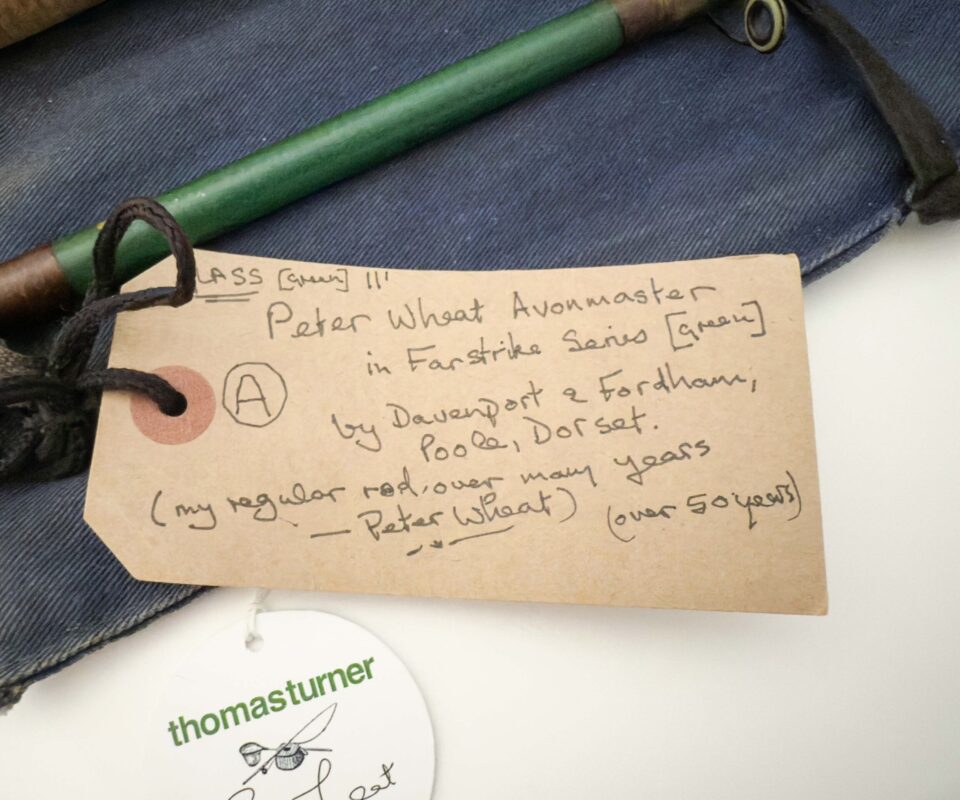 LASS [Green] 11'
Peter Wheat Avonmaster
in Farstrike Series [Green]
A
by Davenport & Fordham,
Poole, Dorset.
(my regular rod, over many years
— Peter Wheat) (over 50 years)
thomasturner